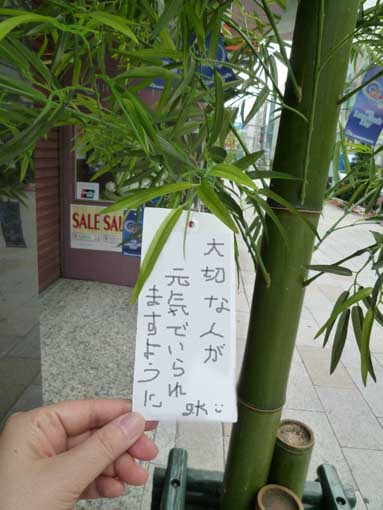 大切な人が
元気でいられ
ますように
SALE SAL